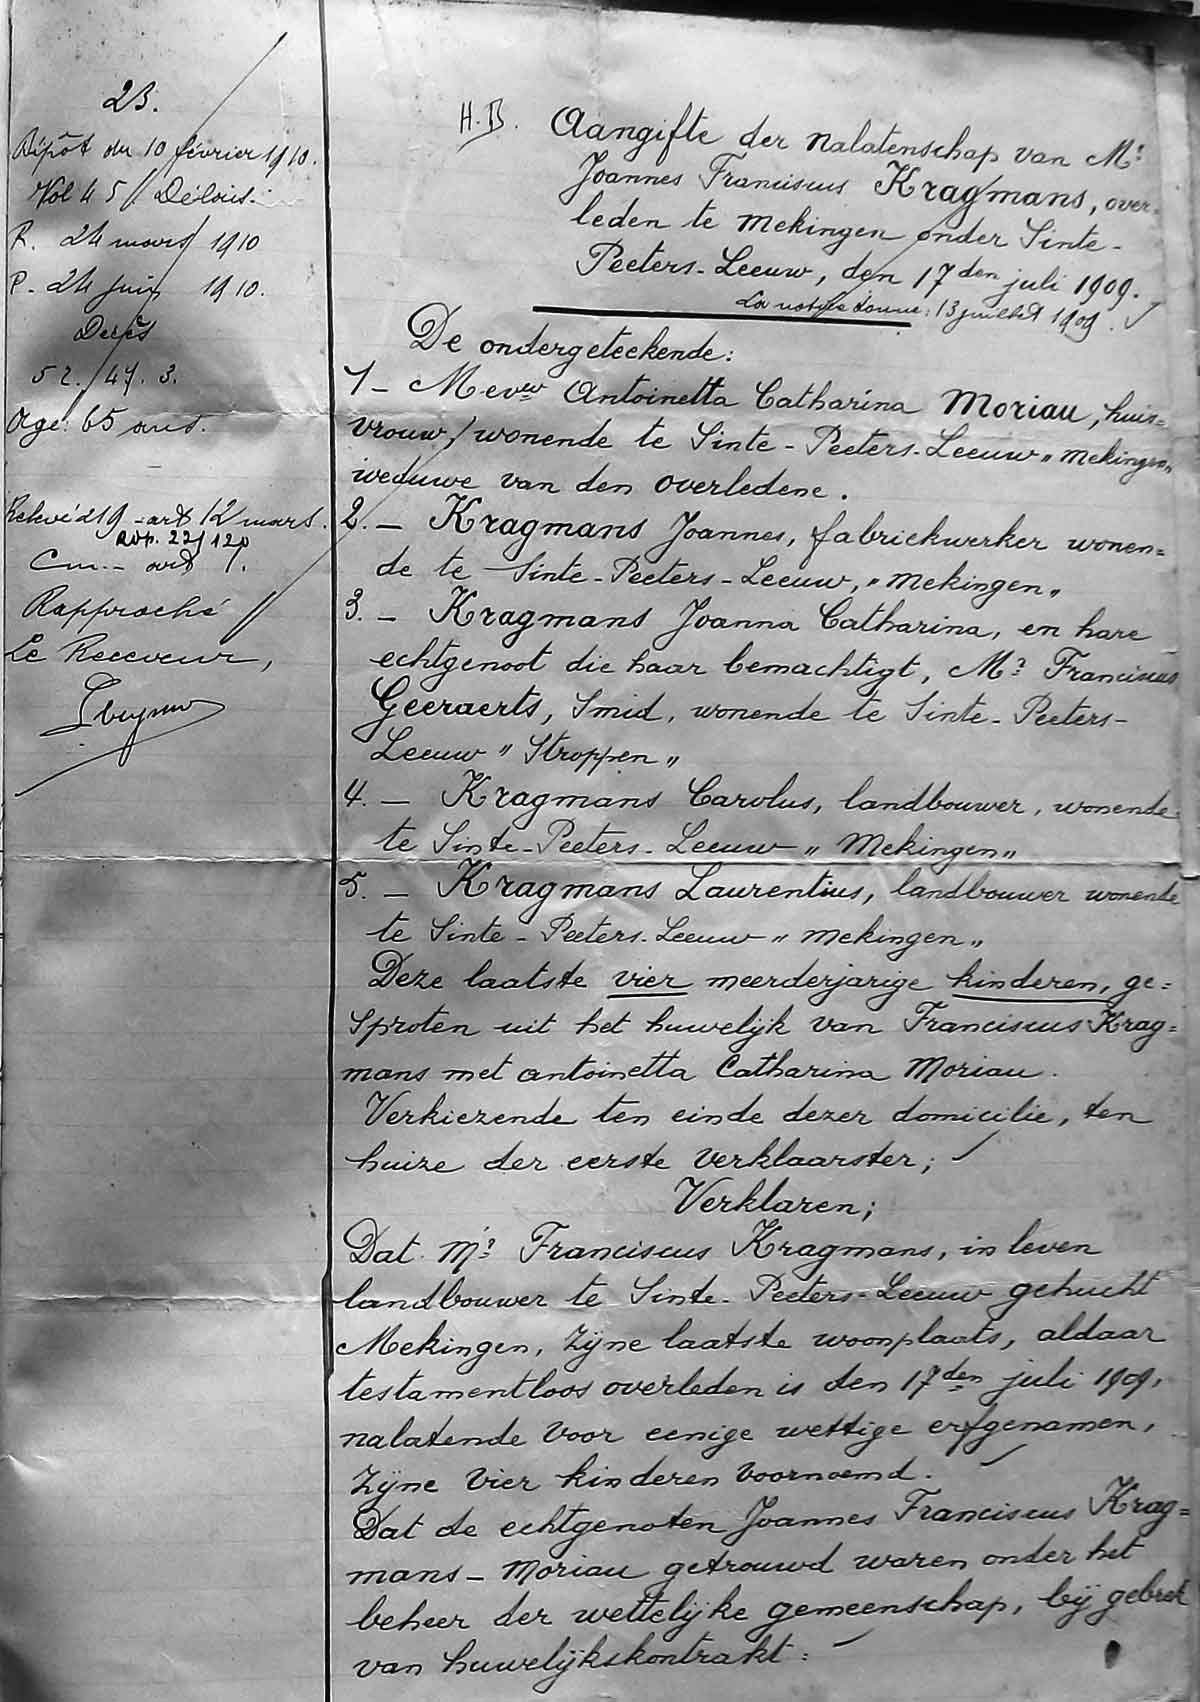 23.
Dépôt du 10 février 1910.
Vol 45
R. 24 mars 1910
P. 24 juin 1910.
Décès
52. 47. 3.
Age: 65 ans.
art 12 mars.
22/120
art
Rapproché
Le Receveur,
H.B. Aangifte der nalatenschap van Mr
Joannes Franciscus Kragmans, over-
leden te Mekingen onder Sinte-
Peeters-Leeuw, den 17den juli 1909.
13 juillet 1909.
De ondergeteekende:
1- Mevw Antoinetta Catharina Moriau, huis=
vrouw, wonende te Sinte-Peeters-Leeuw "Mekingen"
weduwe van den overledene.
2.- Kragmans Joannes, fabriekwerker wonen=
de te Sinte-Peeters-Leeuw, "Mekingen"
3.- Kragmans Joanna Catharina, en hare
echtgenoot die haar bemachtigt, Mr Franciscus
Geeraerts, Smid, wonende te Sinte-Peeters-
Leeuw "Stroppen"
4.- Kragmans Carolus, landbouwer, wonende
te Sinte-Peeters-Leeuw "Mekingen"
5.- Kragmans Laurentius, landbouwer wonende
te Sinte-Peeters-Leeuw "Mekingen"
Deze laatste vier meerderjarige kinderen, ge=
sproten uit het huwelijk van Franciscus Krag=
mans met Antoinetta Catharina Moriau.
Verkiezende ten einde dezer domicilie, ten
huize der eerste verklaarster;
Verklaren;
Dat Mr Franciscus Kragmans, in leven
landbouwer te Sinte-Peeters-Leeuw gehucht
Mekingen, zijne laatste woonplaats, aldaar
testamentloos overleden is den 17den juli 1909,
nalatende voor eenige wettige erfgenamen,
zijne vier kinderen voornoemd.
Dat de echtgenoten Joannes Franciscus Krag=
mans-Moriau getrouwd waren onder het
beheer der wettelijke gemeenschap, bij gebrek
van huwelijkskontrakt: